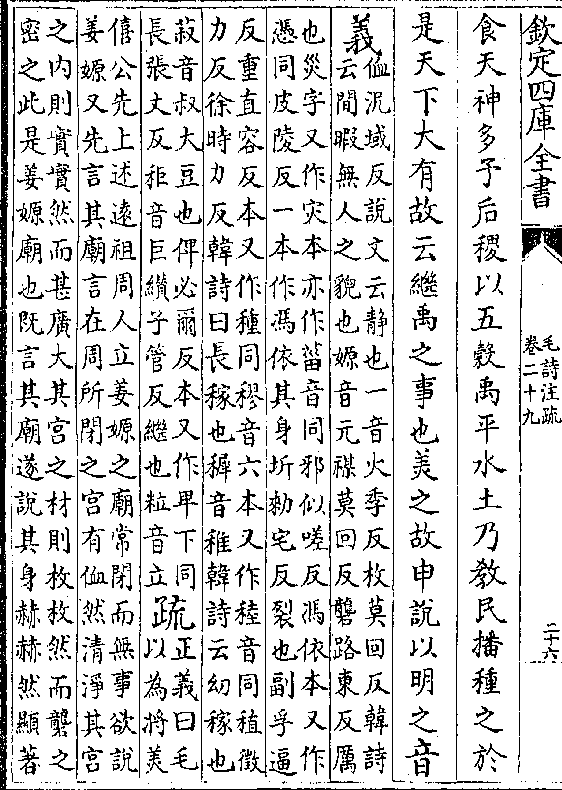 欽定四庫全書
毛詩注疏
卷二十九
二十六
食天神多予后稷以五穀禹平水土乃教民播種之於
是天下大有故云繼禹之事也美之故申說以明之音
義
侐況域反說文云静也一音火季反枚莫回反韓詩
云間暇無人之貌也嫄音元禖莫回反礱路東反厲
也災字又作灾本亦作菑音同邪似嗟反馮依本又作
憑同皮陵反一本作馮依其身坼勑宅反裂也副孚逼
反重直容反本又作種同穋音六本又作稑音同稙徵
力反徐時力反韓詩曰長稼也穉音稚韓詩云幼稼也
菽音叔大豆也俾必爾反本又作卑下同
長張丈反秬音巨纘子管反繼也粒音立
疏
正義曰毛
以為將美
僖公先上述遠祖周人立姜嫄之廟常閉而無事欲說
姜嫄又先言其廟言在周所閉之宮有侐然清淨其宮
之内則實實然而甚廣大其宮之材則枚枚然而礱之
密之此是姜嫄廟也既言其廟遂說其身赫赫然顯著